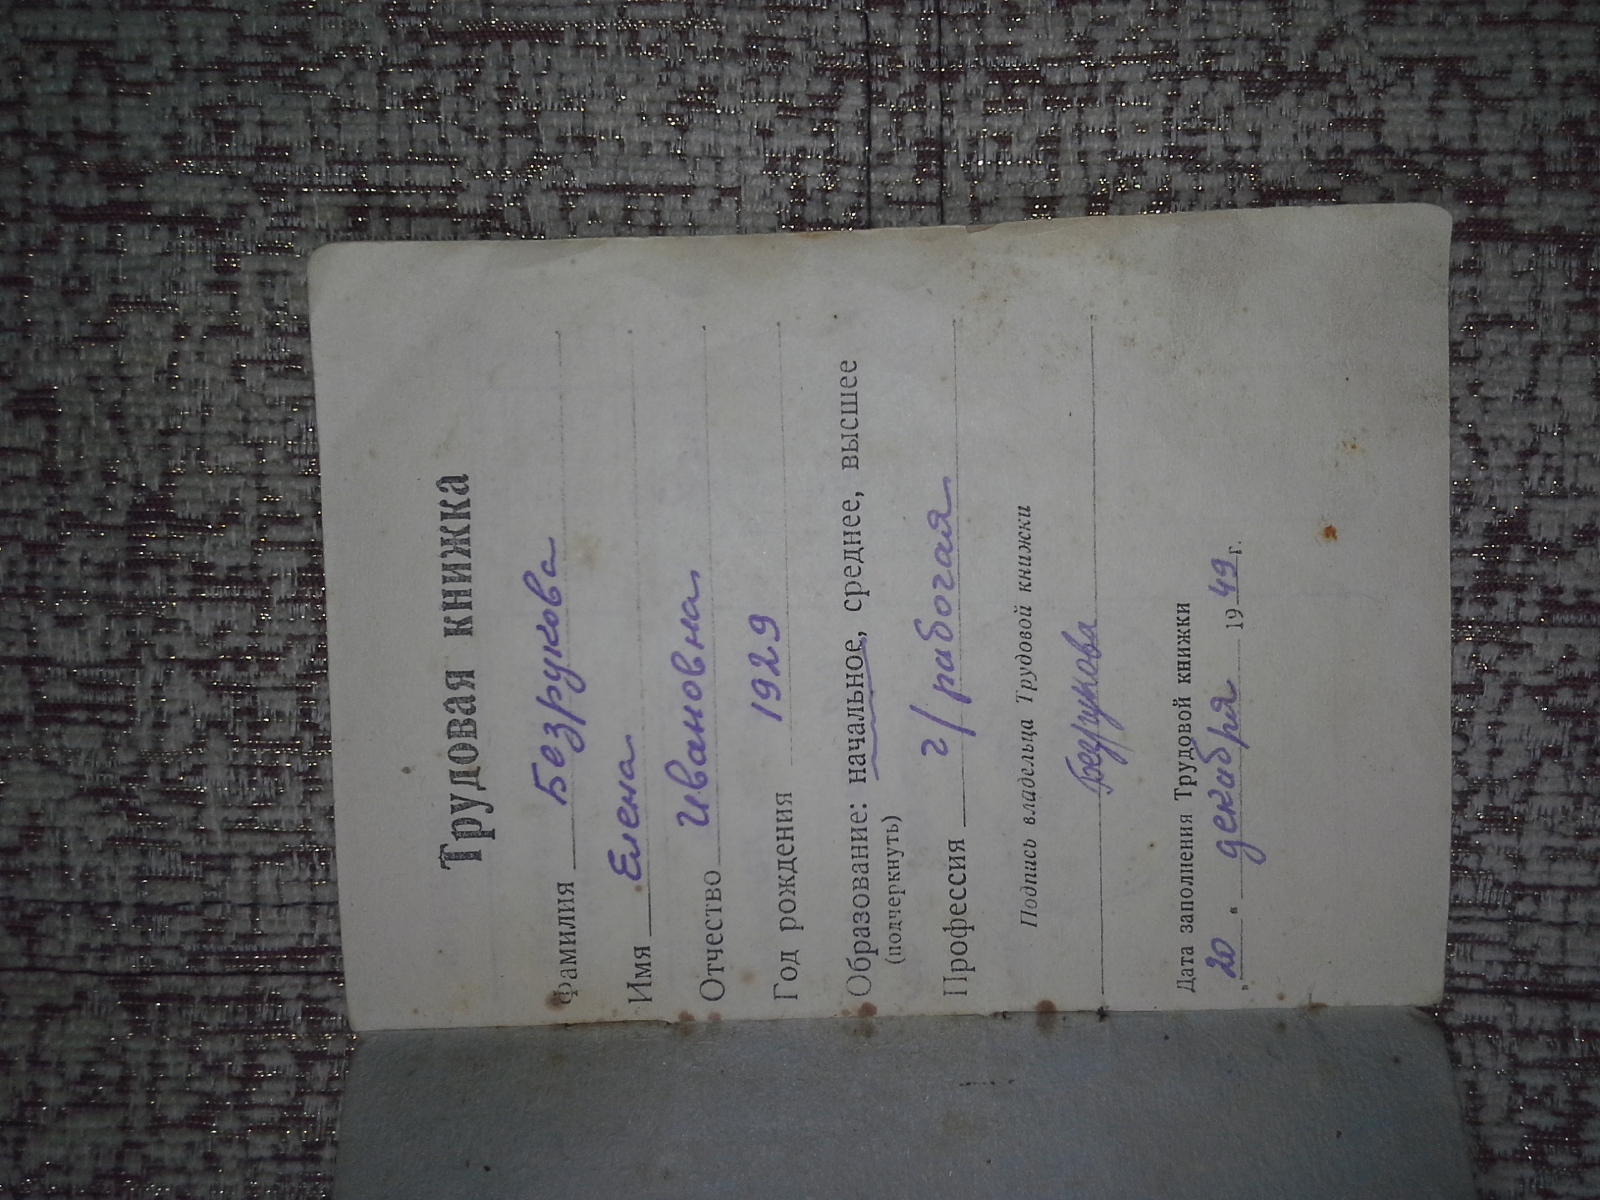 Трудовая книжка
Фамилия Безрукова
Имя Елена
Отчество Ивановна
Год рождения 1929
Образование: начальное, среднее, высшее
(подчеркнуть)
Профессия ч/рабочая
Подпись владельца Трудовой книжки
Безрукова
Дата заполнения Трудовой книжки
„20“ декабря 1949 г.